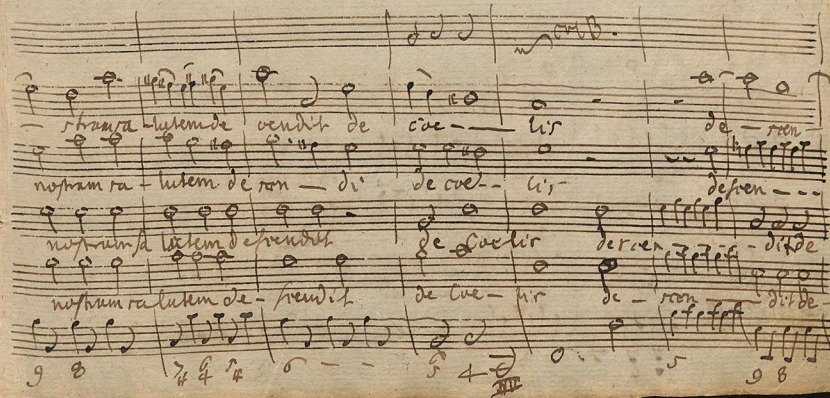 stram sa - lutem de cendit de coe - - - lis de - scen -
nostram sa - lutem de scen - di de coe - - lis descen - - -
nostrum sa lutem descendit de Coelis descen - - - dit de
nostrum sa lutem de - scendit de Coe - lis de - scen - - - dit de
9 8 7 6 5 6 - - 5 4 5 9 8